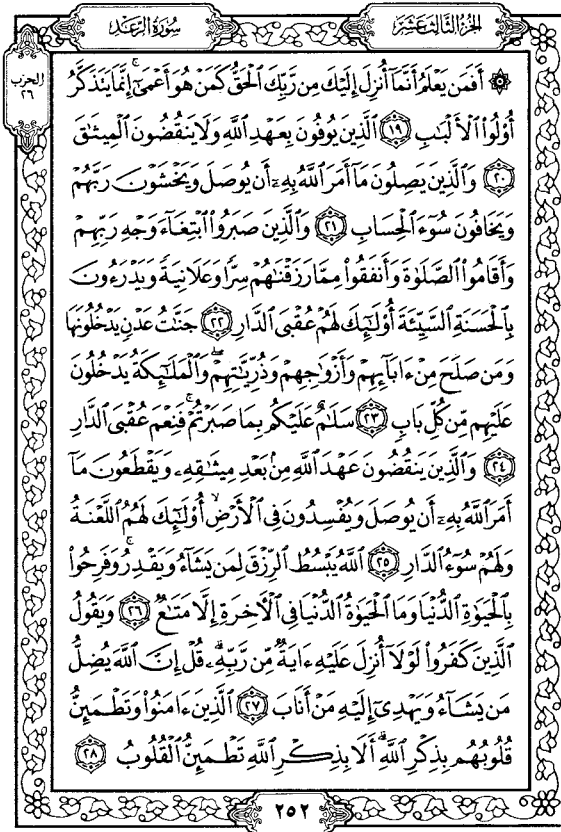 الجزء الثالث عشر
سورة الرعد
الحزب
٢٦
۞ أَفَمَن يَعْلَمُ أَنَّمَآ أُنزِلَ إِلَيْكَ مِن رَّبِّكَ ٱلْحَقُّ كَمَنْ هُوَ أَعْمَىٰٓ ۚ إِنَّمَا يَتَذَكَّرُ
أُو۟لُوا۟ ٱلْأَلْبَٰبِ ۝١٩ ٱلَّذِينَ يُوفُونَ بِعَهْدِ ٱللَّهِ وَلَا يَنقُضُونَ ٱلْمِيثَٰقَ
۝٢٠ وَٱلَّذِينَ يَصِلُونَ مَآ أَمَرَ ٱللَّهُ بِهِۦٓ أَن يُوصَلَ وَيَخْشَوْنَ رَبَّهُمْ
وَيَخَافُونَ سُوٓءَ ٱلْحِسَابِ ۝٢١ وَٱلَّذِينَ صَبَرُوا۟ ٱبْتِغَآءَ وَجْهِ رَبِّهِمْ
وَأَقَامُوا۟ ٱلصَّلَوٰةَ وَأَنفَقُوا۟ مِمَّا رَزَقْنَٰهُمْ سِرًّا وَعَلَانِيَةً وَيَدْرَءُونَ
بِٱلْحَسَنَةِ ٱلسَّيِّئَةَ أُو۟لَٰٓئِكَ لَهُمْ عُقْبَى ٱلدَّارِ ۝٢٢ جَنَّٰتُ عَدْنٍ يَدْخُلُونَهَا
وَمَن صَلَحَ مِنْ ءَابَآئِهِمْ وَأَزْوَٰجِهِمْ وَذُرِّيَّٰتِهِمْ ۖ وَٱلْمَلَٰٓئِكَةُ يَدْخُلُونَ
عَلَيْهِم مِّن كُلِّ بَابٍ ۝٢٣ سَلَٰمٌ عَلَيْكُم بِمَا صَبَرْتُمْ ۚ فَنِعْمَ عُقْبَى ٱلدَّارِ
۝٢٤ وَٱلَّذِينَ يَنقُضُونَ عَهْدَ ٱللَّهِ مِنۢ بَعْدِ مِيثَٰقِهِۦ وَيَقْطَعُونَ مَآ
أَمَرَ ٱللَّهُ بِهِۦٓ أَن يُوصَلَ وَيُفْسِدُونَ فِى ٱلْأَرْضِ ۙ أُو۟لَٰٓئِكَ لَهُمُ ٱللَّعْنَةُ
وَلَهُمْ سُوٓءُ ٱلدَّارِ ۝٢٥ ٱللَّهُ يَبْسُطُ ٱلرِّزْقَ لِمَن يَشَآءُ وَيَقْدِرُ ۚ وَفَرِحُوا۟
بِٱلْحَيَوٰةِ ٱلدُّنْيَا وَمَا ٱلْحَيَوٰةُ ٱلدُّنْيَا فِى ٱلْءَاخِرَةِ إِلَّا مَتَٰعٌ ۝٢٦ وَيَقُولُ
ٱلَّذِينَ كَفَرُوا۟ لَوْلَآ أُنزِلَ عَلَيْهِ ءَايَةٌ مِّن رَّبِّهِۦ ۗ قُلْ إِنَّ ٱللَّهَ يُضِلُّ
مَن يَشَآءُ وَيَهْدِىٓ إِلَيْهِ مَنْ أَنَابَ ۝٢٧ ٱلَّذِينَ ءَامَنُوا۟ وَتَطْمَئِنُّ
قُلُوبُهُم بِذِكْرِ ٱللَّهِ ۗ أَلَا بِذِكْرِ ٱللَّهِ تَطْمَئِنُّ ٱلْقُلُوبُ ۝٢٨
٢٥٢